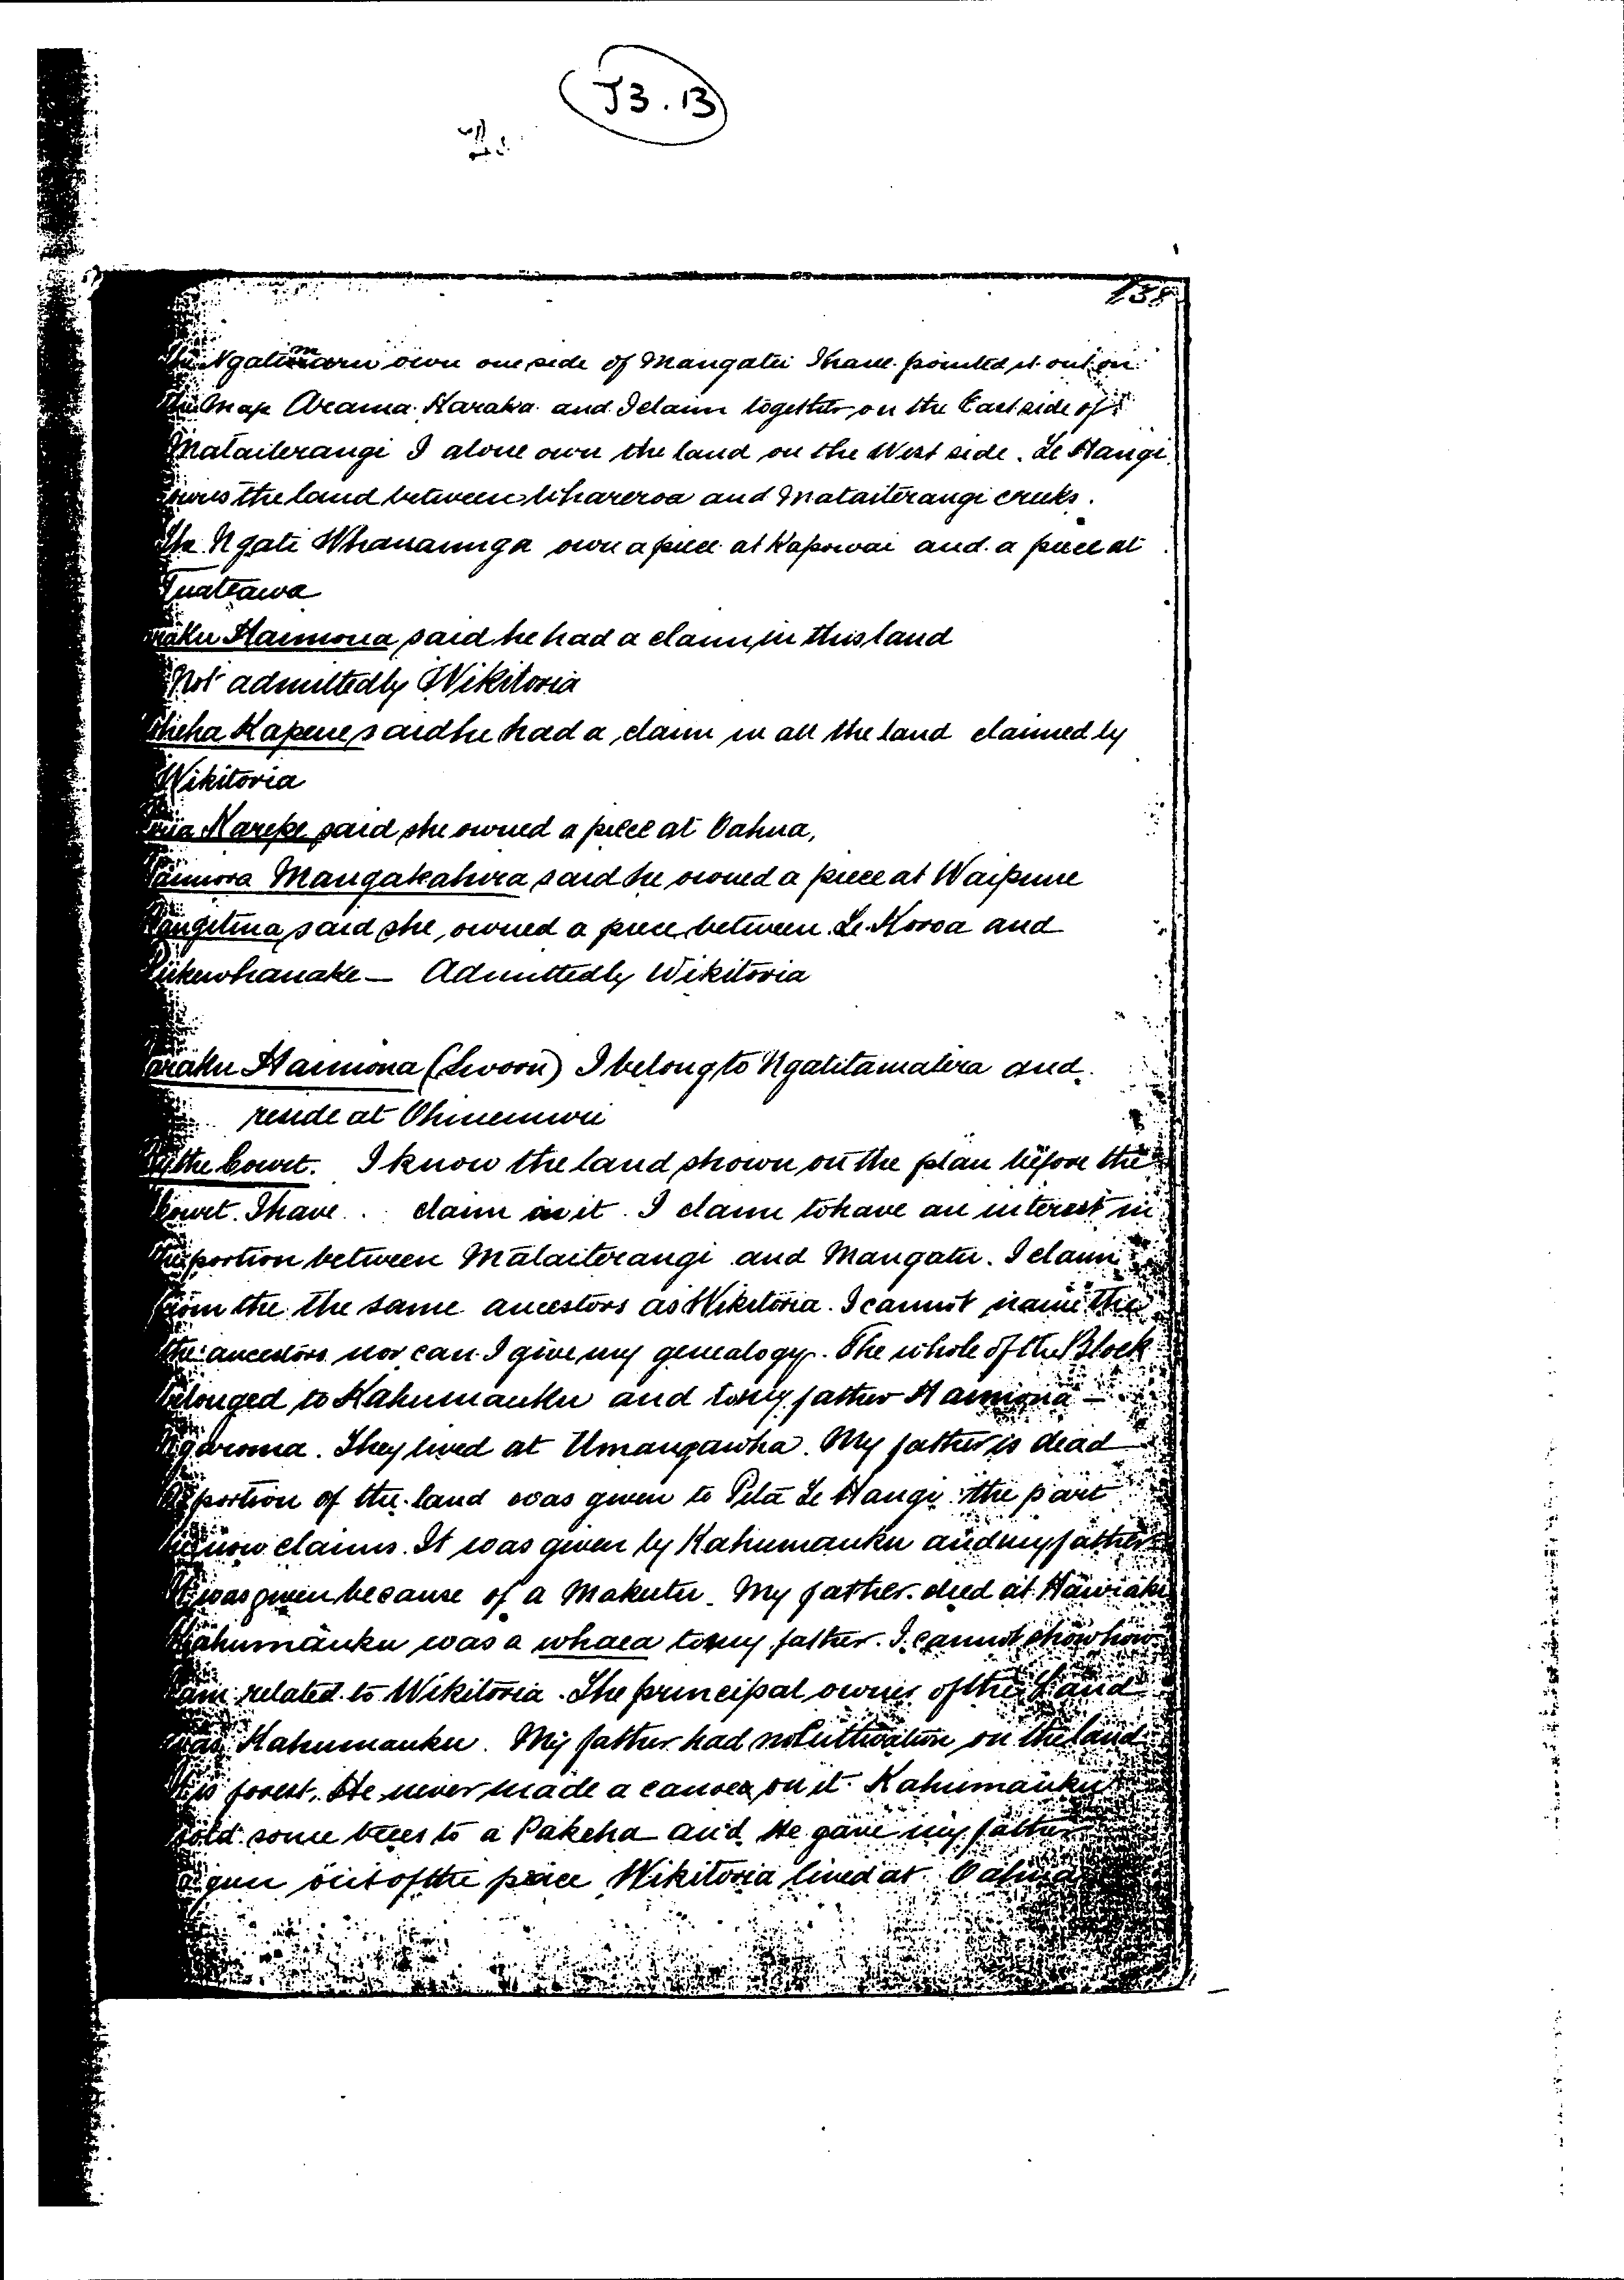 J3.13
138
The Ngatimaru own one side of Mangatu I have pointed it out on
the Map Arama Karaka and I claim together on the East side of
Mataiterangi I alone own the land on the West side. Te Hangi
owns the land between Whareroa and Mataiterangi creeks.
The Ngati Whanaunga own a piece at Kapowai and a piece at
Tuateawa
araku Haimona said he had a claim in this land
Not admitted by Wikitoria
Kapene said he had a claim in all the land claimed by
Wikitoria
Karepe said she owned a piece at Oahua,
Mangakahira said he owned a piece at Waipune
Rangitina said she owned a piece between Te Koroa and
Pukewhanake — Admitted by Wikitoria
araku Haimona (Sworn) I belong to Ngatitamatera and
reside at Ohinemuri
By the Court. I know the land shown on the plan before the
Court. I have .. claim in it. I claim to have an interest in
the portion between Mataiterangi and Mangatu. I claim
from the the same ancestors as Wikitoria. I cannot name the
the ancestors nor can I give my genealogy. The whole of the Block
belonged to Kahumauku and to my father Haimona —
Ngaroma. They lived at Umangawha. My father is dead
A portion of the land was given to Pita Te Hangi the part
he now claims. It was given by Kahumauku and my father
It was given because of a Makutu. My father died at Hawiaki
Kahumauku was a whaea to my father. I cannot show how
I am related to Wikitoria. The principal owner of the Land
was Kahumauku. My father had no Cultivation on the land
It is forest. He never made a canoe on it. Kahumauku
sold some trees to a Pakeha and He gave my father
a gun out of the price Wikitoria lived at Oahua